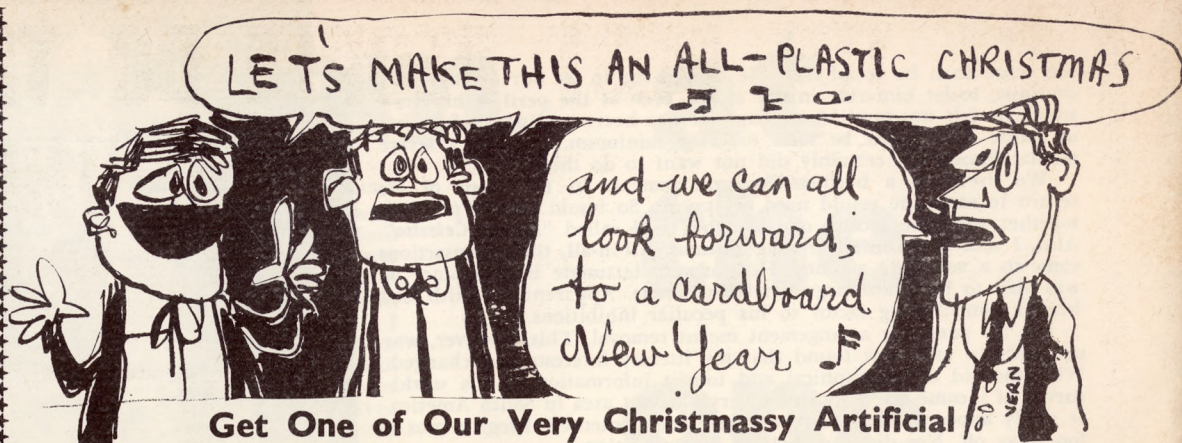 LET'S MAKE THIS AN ALL-PLASTIC CHRISTMAS
and we can all
look forward,
to a cardboard
New Year
VERN
Get One of Our Very Christmassy Artificial